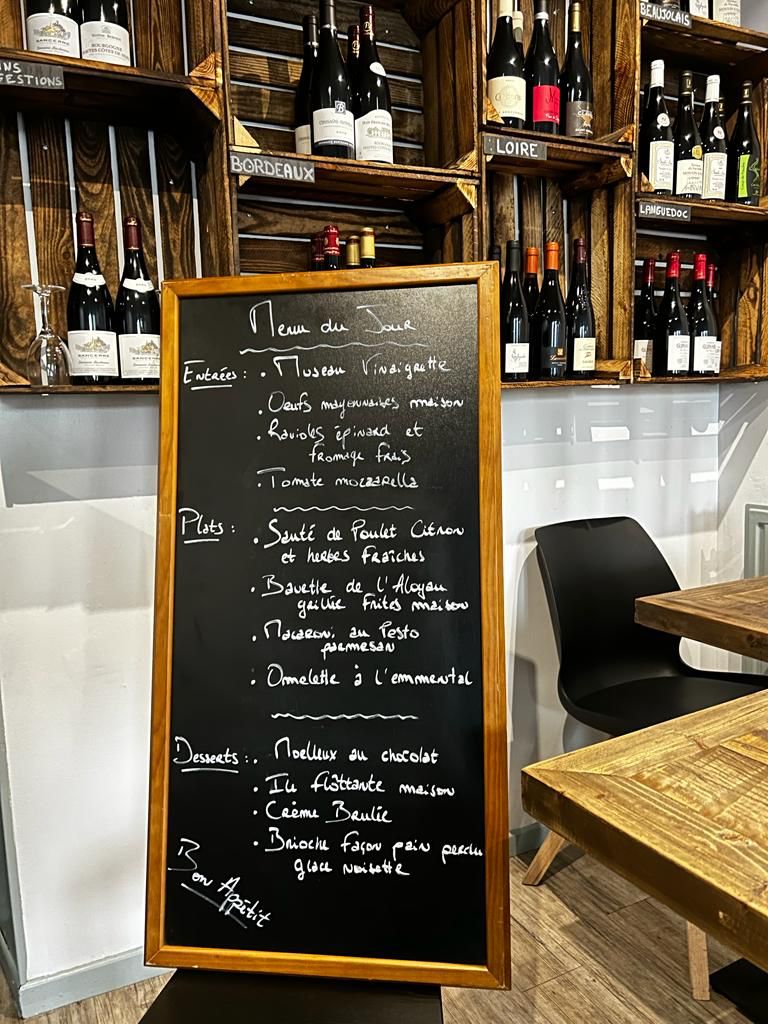 BEAUJOLAIS
FESTIONS
BORDEAUX
LOIRE
LANGUEDOC
SANCERRE
SANCERRE
Menu du Jour
Entrées : . Museau Vinaigrette
. Oeufs mayonnaises maison
. Ravioles épinard et
fromage frais
. Tomate mozzarella
Plats : . Santé de Poulet Citron
et herbes Fraîches
. Bavette de l'Aloyau
grillée frites maison
. Macaroni au Pesto
parmesan
. Omelette à l'emmental
Desserts : . Moelleux au chocolat
. Ile flôttante maison
. Crème Brulée
. Brioche façon pain perdu
glace noisette
Bon Appétit